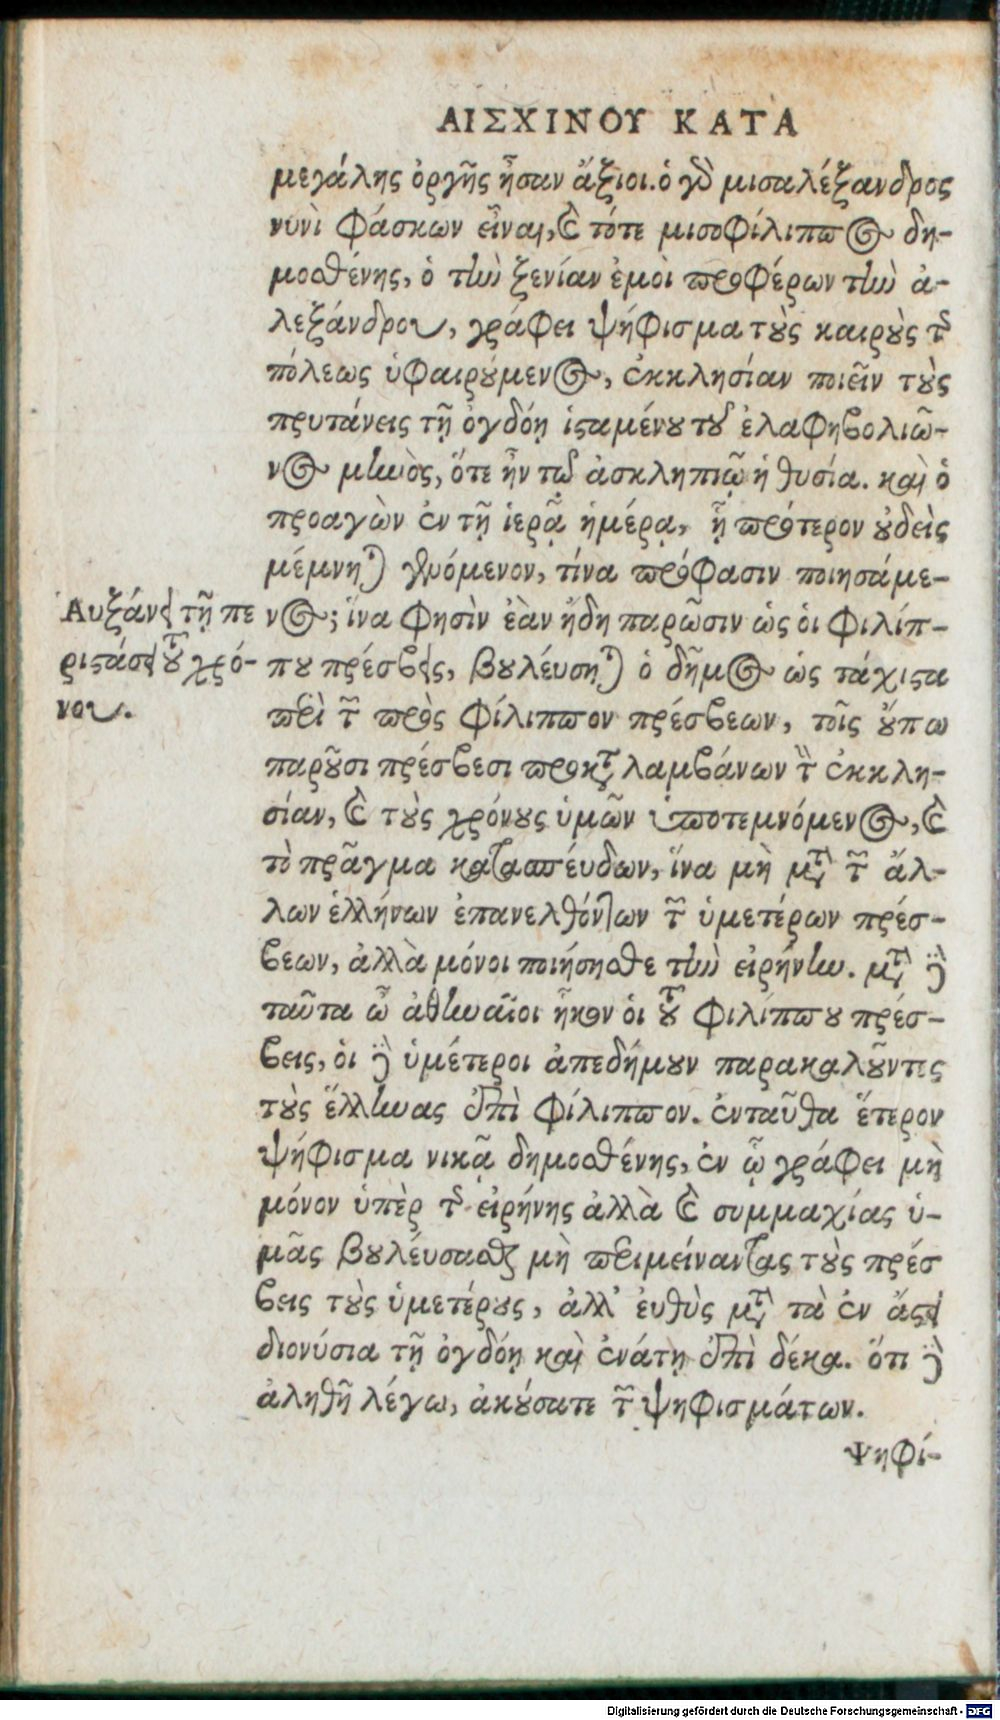 ΑΙΣΧΙΝΟΥ ΚΑΤΑ
μεγάλης ὀργῆς ἦσαν ἄξιοι. ὁ γὸ μισαλέξανδρος
νυνὶ φάσκων εἶναι, ϗ τότε μισοφίλιππος δη-
μοσθένης, ὁ τὴν ξενίαν ἐμοὶ προφέρων τὴν ἀ-
λεξάνδρου, γράφει ψήφισμα τοὺς καιροὺς τῆς
πόλεως ὑφαιρούμενος, ἐκκλησίαν ποιεῖν τοὺς
πρυτάνεις τῇ ὀγδόῃ ἱσταμένου τοῦ ἐλαφηβολιῶ-
νος μηνὸς, ὅτε ἦν τῷ ἀσκληπιῷ ἡ θυσία. καὶ ὁ
προαγὼν ἐν τῇ ἱερᾷ ἡμέρᾳ, ᾗ πρότερον οὐδεὶς
μέμνηται γενόμενον, τίνα πρόφασιν ποιησάμε-
νος; ἵνα φησὶν ἐὰν ἤδη παρῶσιν ὡς οἱ φιλίπ-
που πρέσβεις, βουλεύσηται ὁ δῆμος ὡς τάχιστα
περὶ τῶν πρὸς φίλιππον πρέσβεων, τοῖς οὔπω
παροῦσι πρέσβεσι προκαταλαμβάνων τὴν ἐκκλη-
σίαν, ϗ τοὺς χρόνους ὑμῶν ὑποτεμνόμενος, ϗ
τὸ πρᾶγμα κατασπεύδων, ἵνα μὴ μετὰ τῶν ἄλ-
λων ἑλλήνων ἐπανελθόντων τῶν ὑμετέρων πρέσ-
βεων, ἀλλὰ μόνοι ποιήσησθε τὴν εἰρήνην. μετὰ δὲ
ταῦτα ὦ ἀθηναῖοι ἧκον οἱ τοῦ φιλίππου πρέσ-
βεις, οἱ δὲ ὑμέτεροι ἀπεδήμουν παρακαλοῦντες
τοὺς ἕλληνας ἐπὶ φίλιππον. ἐνταῦθα ἕτερον
ψήφισμα νικᾷ δημοσθένης, ἐν ᾧ γράφει μὴ
μόνον ὑπὲρ τῆς εἰρήνης ἀλλὰ ϗ συμμαχίας ὑ-
μᾶς βουλεύσασθαι μὴ περιμείναντας τοὺς πρέσ
βεις τοὺς ὑμετέρους, ἀλλ' εὐθὺς μετὰ τὰ ἐν ἄστει
διονύσια τῇ ὀγδόῃ καὶ ἐνάτῃ ἐπὶ δέκα. ὅτι δὲ
ἀληθῆ λέγω, ἀκούσατε τῶν ψηφισμάτων.
Ψηφί-
Αυξάνει τῇ πε
ριστάσει τοῦ χρό-
νου.
Digitalisierung gefördert durch die Deutsche Forschungsgemeinschaft - DFG